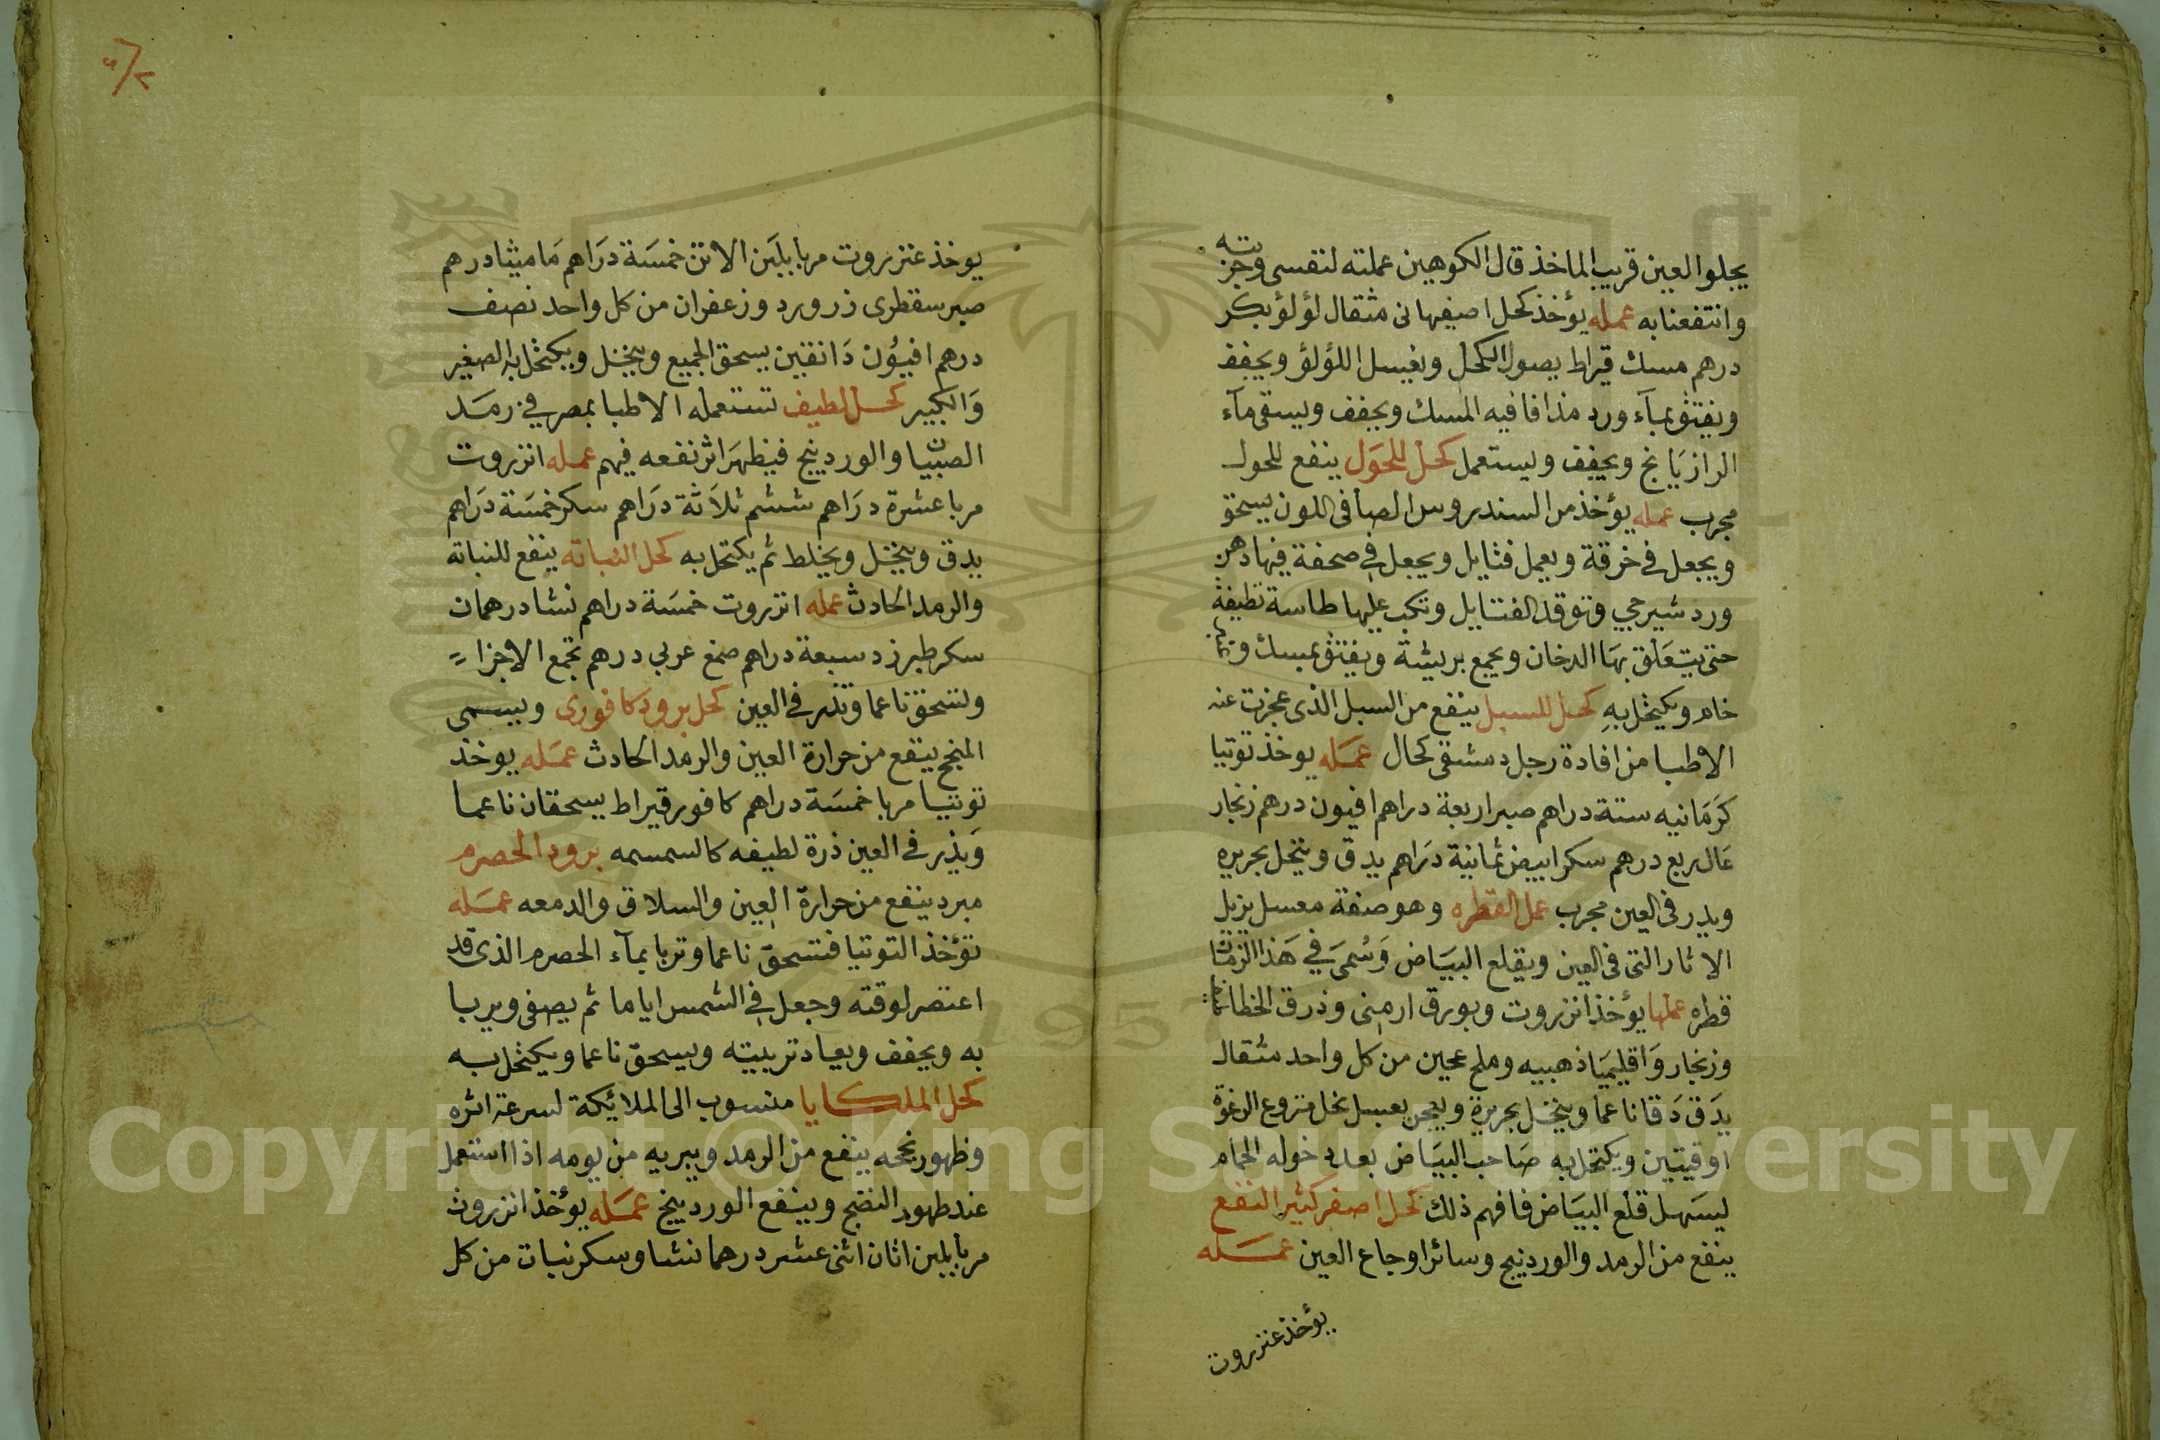 يجلوا العين قريب الماخذ قال الكوهين عملته لنفسي وجربته
وانتفعنا به عمله يؤخذ كحل اصفهانى مثقال لؤلؤ بكر
درهم مسك قيراط يصول الكحل ويغسل اللؤلؤ ويجفف
ويفتق بمآء ورد مذافا فيه المسك ويجفف ويسقى مآء
الرازيانج ويجفف ويستعمل كحل للحول ينفع للحول
مجرب عمله يؤخذ من السندروس الصافى اللون يسحق
ويجعل في خرقة ويعمل فتايل ويجعل في صحفة فيها دهن
ورد شيرجي وتوقد الفتايل وتكب عليها طاسة نظيفة
حتى يتعلق بها الدخان ويجمع بريشة ويفتق بمسك و
خام ويكتحل به كحل للسبل ينفع من السبل الذى عجزت عنه
الاطبا من افادة رجل دمشقى كحال عمله يوخذ توتيا
كرمانيه ستة دراهم صبر اربعة دراهم افيون درهم زنجار
عال ربع درهم سكر ابيض ثمانية دراهم يدق وينخل بحريره
ويدر فى العين مجرب عمل القطره وهو صفة معسل يزيل
الاثار التى فى العين ويقلع البياض وسمى في هذا الزمان
قطره عملها يؤخذ انزروت وبورق ارمنى وذرق الخطا
وزنجار واقليميا ذهبيه وملح عجين من كل واحد مثقال
يدق دقا ناعما وينخل بحريرة ويعجن بعسل نحل منزوع الرغوة
اوقيتين ويكتحل به صاحب البياض بعد دخوله الحمام
ليسهل قلع البياض فافهم ذلك كحل اصفر كثير النفع
ينفع من الرمد والوردينج وسائر اوجاع العين عمله
يؤخذ عنزروت
يوخذ عنزروت مربا بلبن الاتن خمسة دراهم ماميثا درهم
صبر سقطرى زر ورد وزعفران من كل واحد نصف
درهم افيون دانقين يسحق الجميع وينخل ويكتحل به الصغير
والكبير كحل لطيف تستعمله الاطبا بمصر في رمد
الصبيان والوردينج فيظهر اثر نفعه فيهم عمله انزروت
مربا عشرة دراهم ششم ثلاثة دراهم سكر خمسة دراهم
يدق وينخل ويخلط ثم يكتحل به كحل النباته ينفع للنباته
والرمد الحادث عمله انزروت خمسة دراهم نشا درهمان
سكر طبرزد سبعة دراهم صمغ عربي درهم تجمع الاجزاء
وتسحق ناعما وتذر في العين كحل برود كافورى ويسمى
المنجح ينفع من حرارة العين والرمد الحادث عمله يوخذ
توتيا مربا خمسة دراهم كافور قيراط يسحقان ناعما
ويذر في العين ذرة لطيفه كالسمسمه برود الحصرم
مبرد ينفع من حرارة العين والسلاق والدمعه عمله
تؤخذ التوتيا فتسحق ناعما وتربا بمآء الحصرم الذى قد
اعتصر لوقته وجعل في الشمس اياما ثم يصفى ويربا
به ويجفف ويعاد تربيته ويسحق ناعما ويكتحل به
كحل الملكايا منسوب الى الملائكة لسرعة اثره
وظهور نجحه ينفع من الرمد ويبريه من يومه اذا استعمل
عند ظهور النضج وينفع الوردينج عمله يؤخذ انزروت
مربا بلبن اتان اثنى عشر درهما نشا وسكر نبات من كل
Copyright © King Saud University
1957